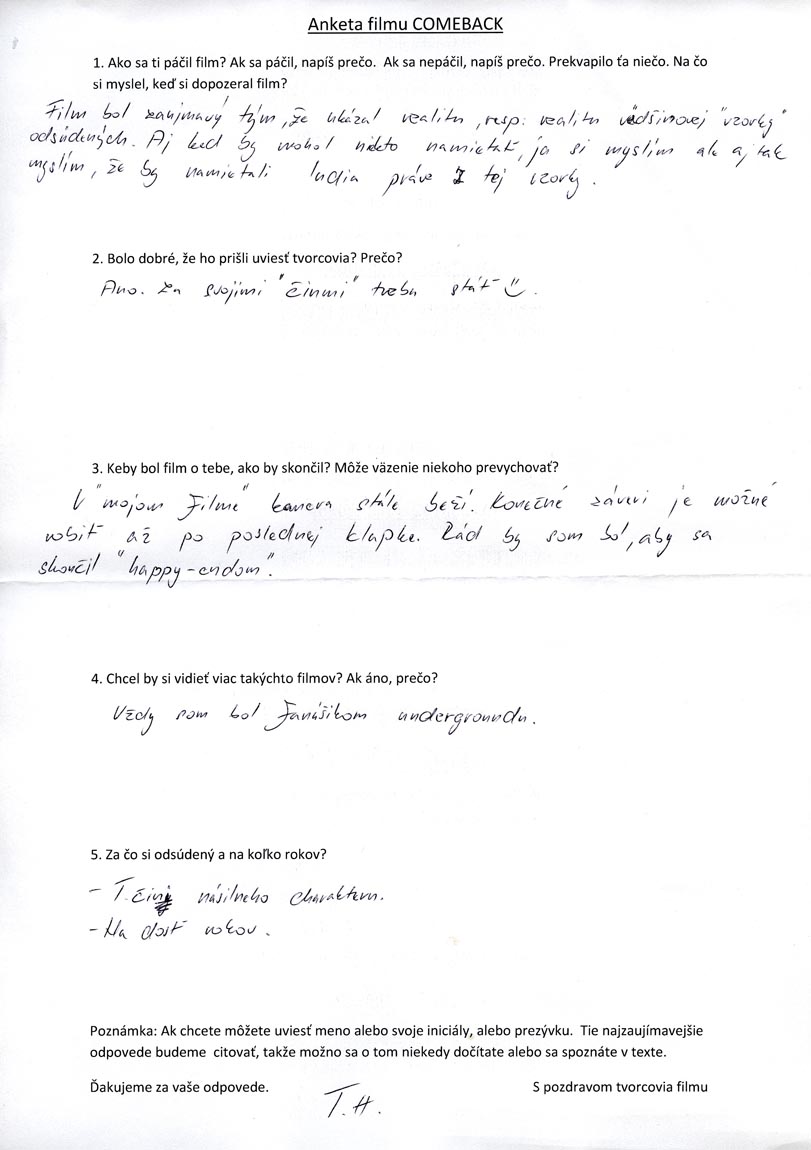 Anketa filmu COMEBACK
1. Ako sa ti páčil film? Ak sa páčil, napíš prečo. Ak sa nepáčil, napíš prečo. Prekvapilo ťa niečo. Na čo
si myslel, keď si dopozeral film?
Film bol zaujímavý tým, že ukázal realitu, resp. realitu väčšinovej "vzorky"
odsúdených. Aj keď by mohol niekto namietať, ja si myslím ale aj tak
myslím, že by namietali ľudia práve z tej vzorky.
2. Bolo dobré, že ho prišli uviesť tvorcovia? Prečo?
Áno. Za svojimi "činmi" treba stáť.
3. Keby bol film o tebe, ako by skončil? Môže väzenie niekoho prevychovať?
V "mojom filme" kamera stále beží. Konečné záveri je možné
robiť až po poslednej klapke. Rád by som bol, aby sa
skončil "happy-endom".
4. Chcel by si vidieť viac takýchto filmov? Ak áno, prečo?
Vždy som bol fanúšikom undergroundu.
5. Za čo si odsúdený a na koľko rokov?
- T. činy násilneho charakteru.
- Na dosť rokov.
Poznámka: Ak chcete môžete uviesť meno alebo svoje iniciály, alebo prezývku. Tie najzaujímavejšie
odpovede budeme citovať, takže možno sa o tom niekedy dočítate alebo sa spoznáte v texte.
Ďakujeme za vaše odpovede. S pozdravom tvorcovia filmu
T.H.